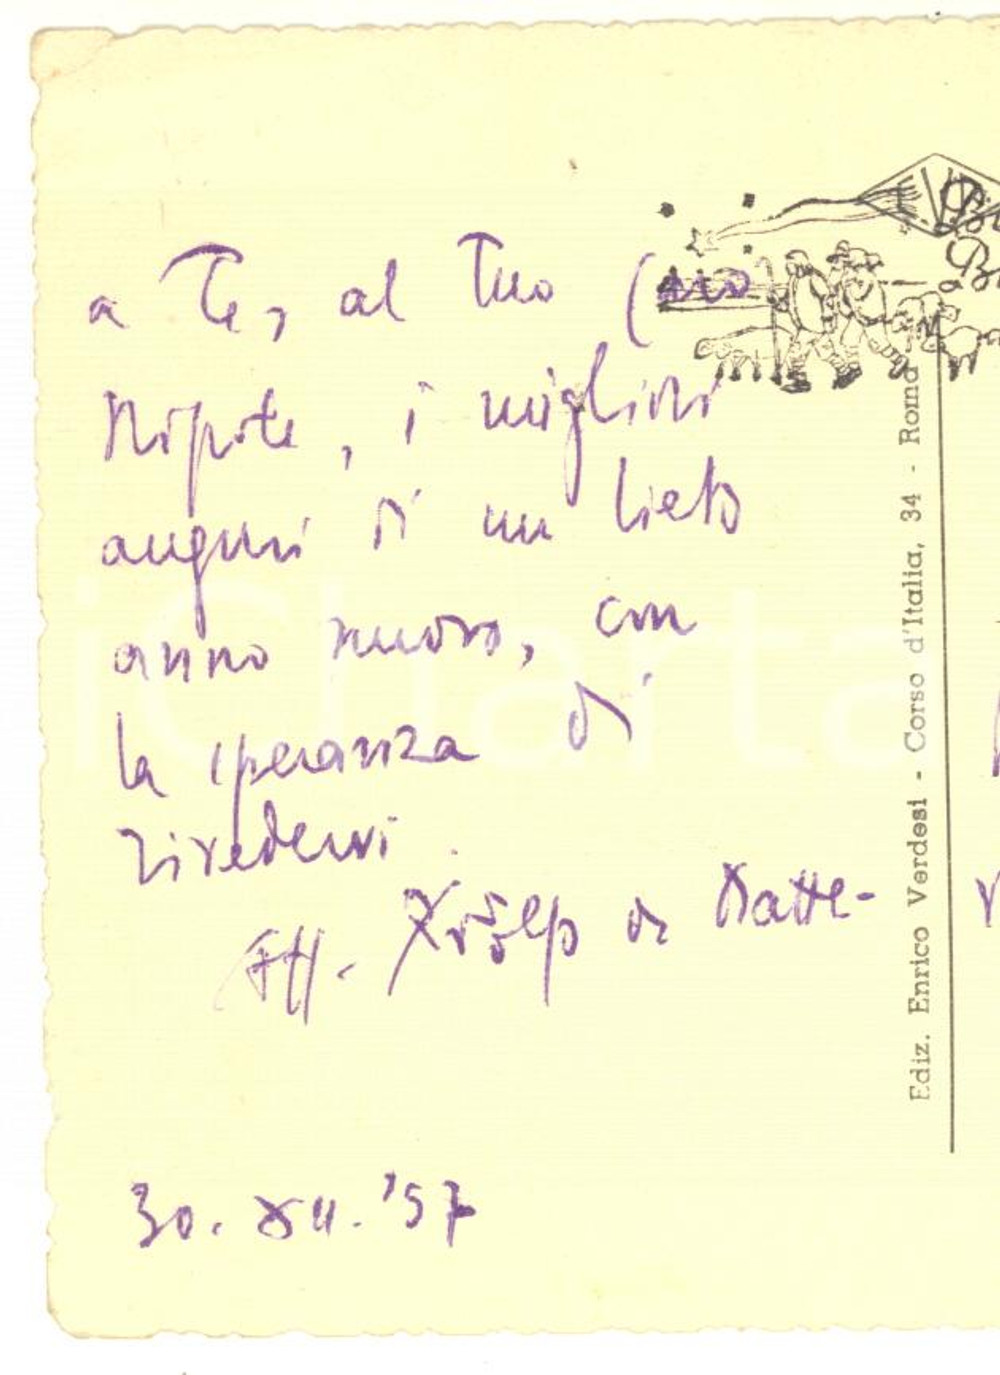 a Te, al Tuo caro
Nipote, i migliori
auguri di un lieto
anno nuovo, con
la speranza di
rivedervi.
Aff. de Matte-
30. XII. '57
Ediz. Enrico Verdesi - Corso d'Italia, 34 - Roma
iCharta